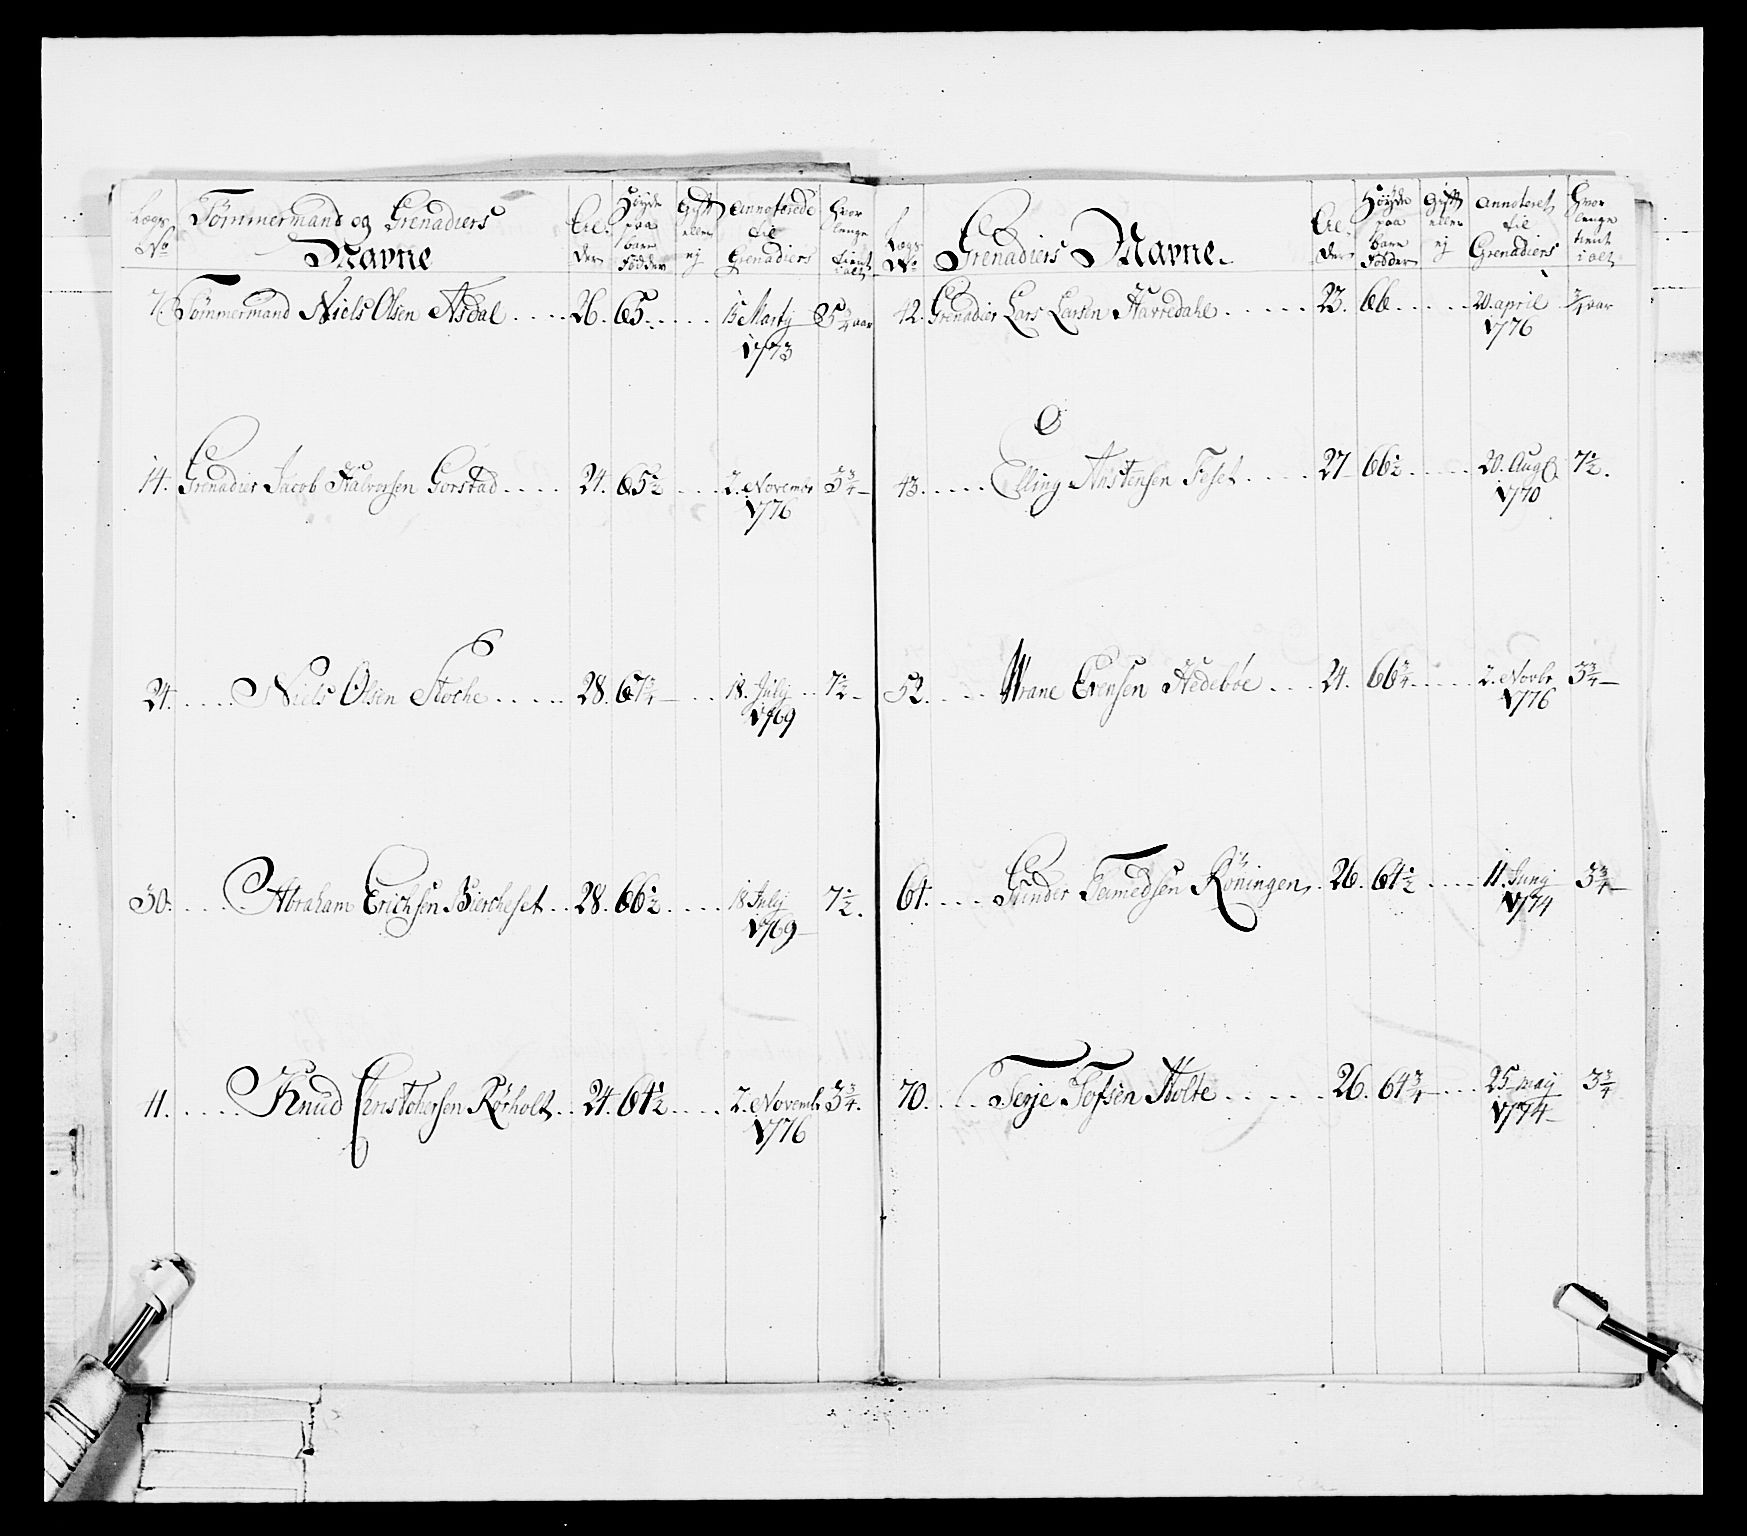 Lægs No | Tømmermand og Grenadiers Navne | Al- der | Høyde paa bare Fødder | Gift eller ej | Annoterede til Grenadiers | Hvor lenge tient i alt
7. Tømmermand Niels Olsen Asdal ..... 26. 65. ..... 15 Martj 1773 5 3/4 aar
14. Grenadier Jacob Halvorsen Gorstad .... 24. 65 1/2 .... 2. Novembr 1776 3 3/4
24. ..... Niels Olsen Stoche ..... 28. 67 1/4 .... 18. Julij 1769 7 1/2
30. .... Abraham Erichsen Biercheset .. 28. 66 1/2 .... 18 Julij 1769 7 1/2.
11. ..... Knud Christohersen Rørholt .. 24. 64 1/2 .... 2. Novembr 1776 3 3/4.
Lægs No | Grenadiers Navne. | Al- der | Høyde paa bare Fødder | Gift eller ej | Annoteret til Grenadiers | Hvor lenge tient i alt
42. Grenadier Lars Larsen Havredahl ..... 23. 66 ..... 20. april 1776 3/4 aar
43. ..... Elling Anstensen Feset .... 27 66 1/2 .... 20. Aug 1770 7 1/2.
52. .... Wrane Evensen Hedebøe ... 24. 66 3/4 .... 2. Novbr 1776 3 3/4
64. .... Gunder Røningen .. 26. 64 1/2 .... 11. Junij 1774 3 3/4
70. .... Terje Tofsen Holte ..... 26. 64 3/4 ... 25 maij 1774 3 3/4